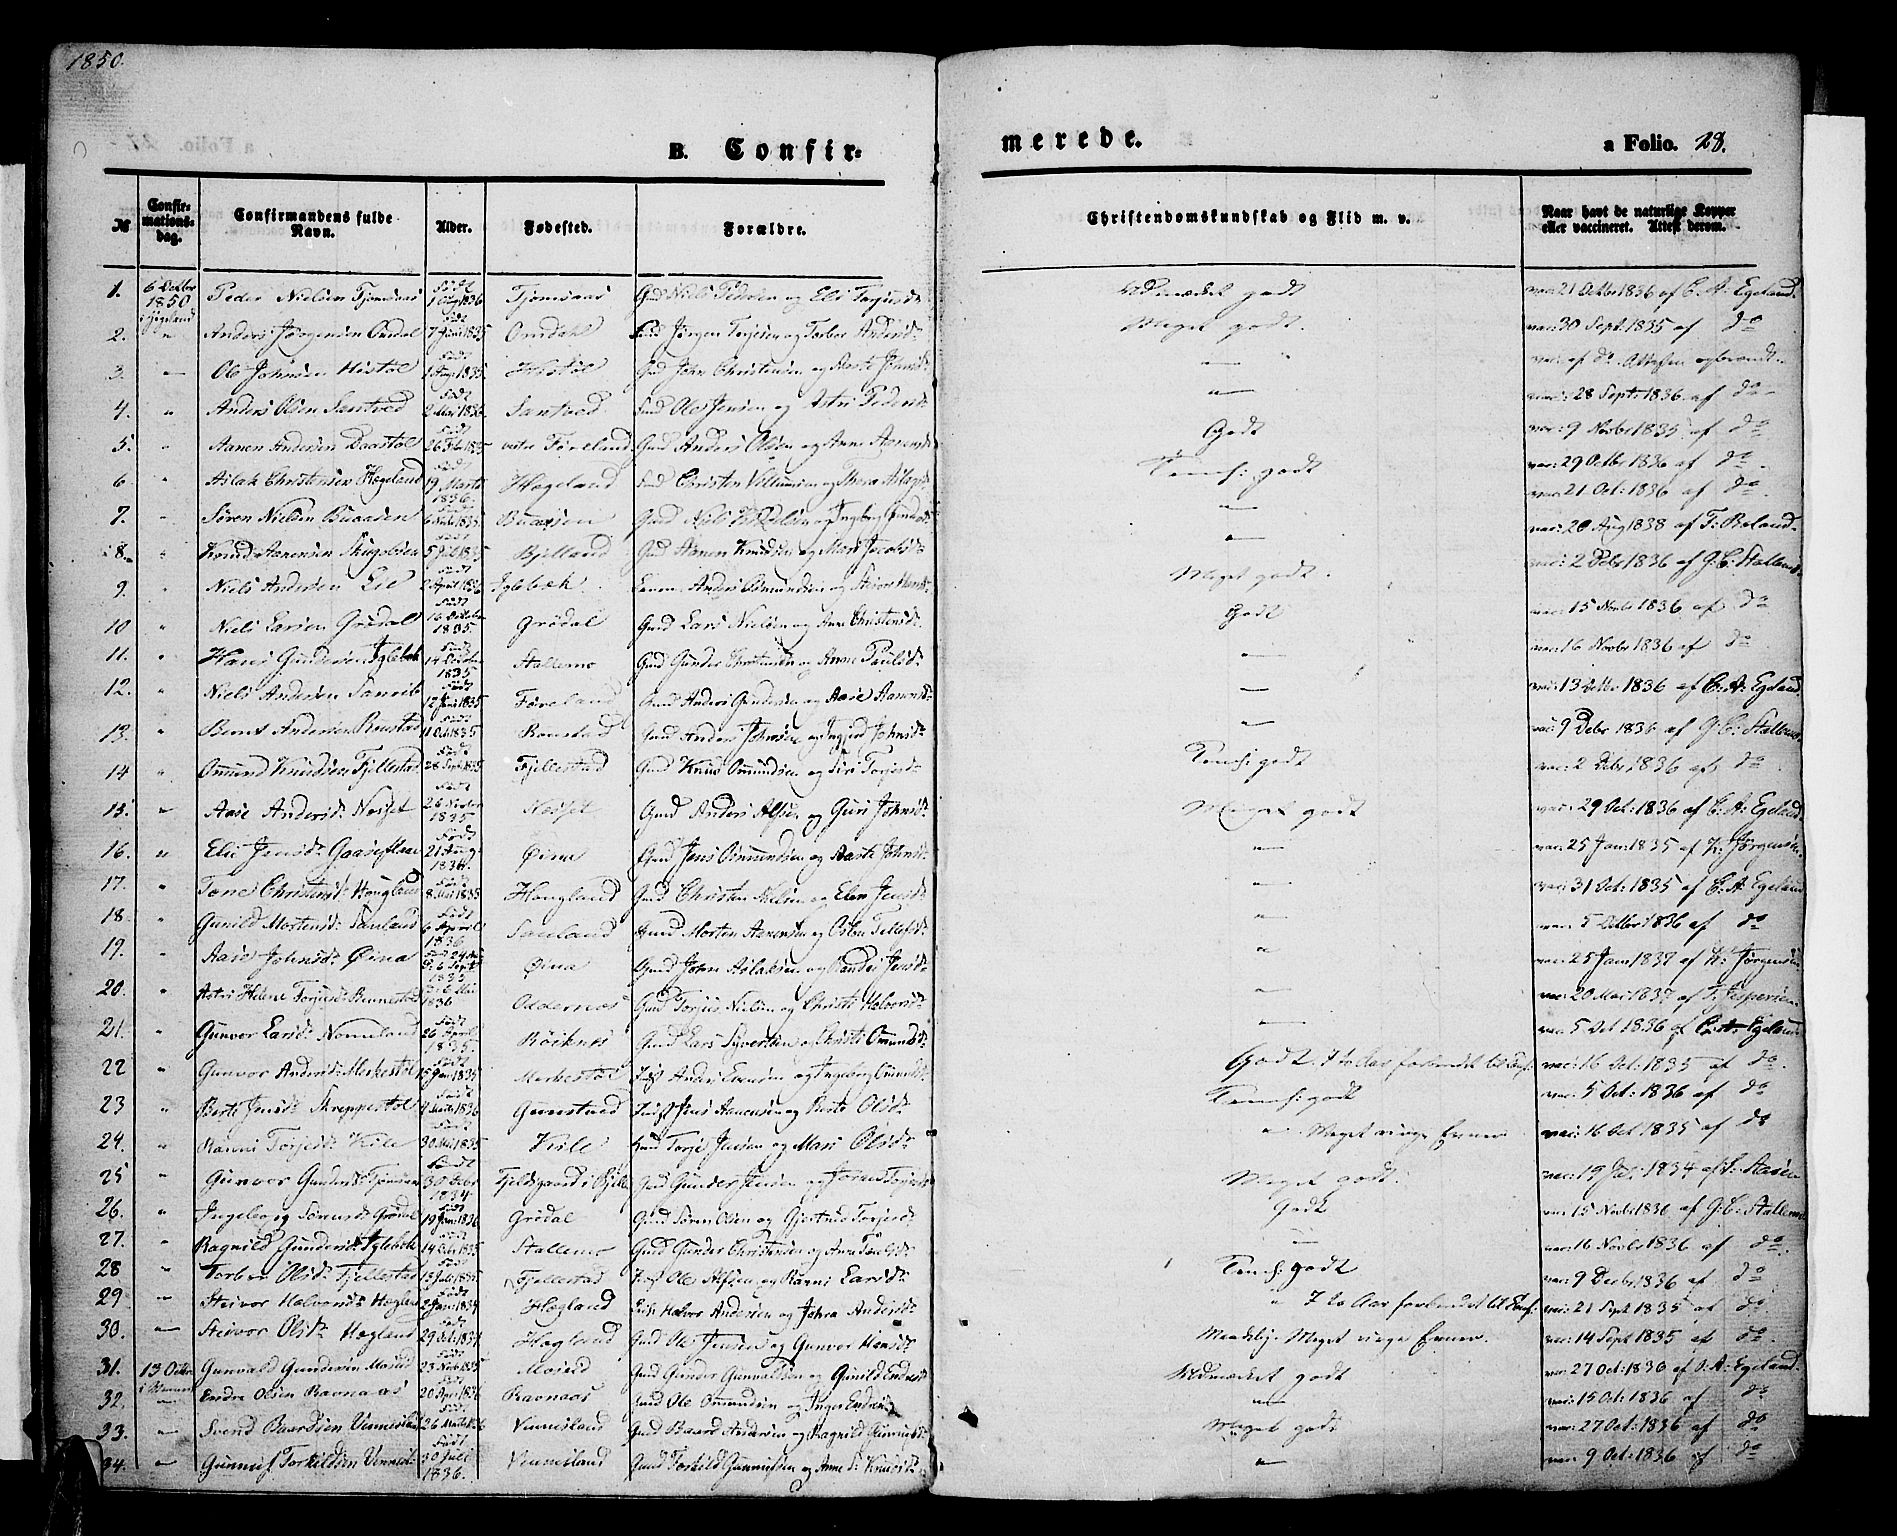 1850.
B. Confir=
merede.
a Folio. 28.
№ Confirmationsdag. Confirmandens fulde Navn. Alder. Fødested. Forældre. Christendomskundskab og Flid m. v. Naar havt de naturlige Kopper eller vaccineret. Attest derom.
1. 6 Octbr 1850 i Hægeland Peder Nielsen Tjomsaas Født 1 Aug 1836 Tjomsaas Gmd Niels Pedersen og Eli Torjusd: Udmærket godt vac: 21 Octbr 1836 af C. A: Egeland.
2. " Anders Jørgensen Omdal Født 7 Juni 1835 Omdahl Gmd Jørgen Torjesen og Torbor Andersd: Meget godt. vac: 30 Sept: 1835 af do
3. — Ole Johnsen Histøl Født 1835. Histøl Gmd John Christensen og Aaste Johnsd: — " vac: af do Attesten opbrændt.
4. " Anders Olsen Santved Født 2 Mai 1836 Santved Gmd Ole Jensen og Astri Pedersd: — vac: 28 Sept: 1836 af do
5. " Aanen Andersen Daastøl Født 26 Feb 1835 Føreland Gmd Anders Olsen og Anne Aanensd: Godt vac: 9 Novbr 1835 af do
6. " Aslak Christensen Hægeland Født 19 Marts 1836. Hægeland Gmd Christen Villumsen og Thora Aslagsd: Temel: godt vac: 29 Octbr 1836 af do
7. " Søren Nielsen Buaasen Født 1835 Buaasen Gmd Niels og Ingeborg Gundersd: — vac: 21 Oct: 1836 af do
8. " Knud Aanensen Født 5 Juli 1835 Bjelland Gmd Aanen Knudsen og Mari Jacobsd: — vac: 20 Aug 1838 af T: Røland
9. " Niels Andersen Lie Født 2 April 1836 Iglebæk Anders Osmundsen og Steivor Hansd: Meget godt. vac: 2 Debr 1836 af G. C: Stallemo
10 " Niels Larsen Grødal Født 16 Octbr 1835. Grødal Gmd Lars Nielsen og Anne Christensd: Godt vac: 15 Novbr 1836 af do
11. " Hans Gundersen Iglebæk Født 14 Octbr 1835 Stallemo Gmd Gunder Christensen og Anne Paulsd: — vac: 16 Novbr 1836 af do
12. " Niels Andersen Født 12 Juni 1835 Føreland Gmd Anders Gundersen og Aase Aanensd: — vac: 13 Octbr 1836 af C. A: Egeland
13. " Bernt Andersen Født 11 Oct 1835 Gmd Anders Johnsen og Ingerd Johnsd: — vac: 9 Debr 1836 af G. C: Stallemo
14 " Ommund Knudsen Fjellestad Født 28 Sept 1835 Fjellestad Gmd Knud Ommundsen og Siri Torjesd: Temel: godt vac: 2 Debr 1836 af do
15. " Aase Andersd: Nesset Født 26 Novbr 1835 Nesset Gmd Anders Alfsen og Guri Johnsd: Meget godt vac: 29 Oct: 1836 af C. A: Egeland
16. " Elie Jensd: Gaaseflaae Født 21 Aug 1834. Øina Gmd Jens Osmundsen og Aaste Johnsd: — vac: 25 Jan: 1835 af H: Jørgensen
17. " Tone Christensd: Hougland Født 8 Mai 1835 Hougland Gmd Christen Nielsen og Elen Jensd: — vac: 31 Oct: 1835 af C. A: Egeland
18. " Gunild Mortensd: Sanland Født 6 April 1836 Sanland Gmd Morten Aanensen og Osbor Tellefsd: — vac: 5 Octbr 1836 af do
19. " Aase Johnsd: Øina 1835 Øina Gmd John Aslaksen og Randi Jensd: " vac: 25 Jan: 1837 af H: Jørgensen
20. " Astri Helene Torjusd: 6 Mai 1836 Oddernæs Gmd Torjus Nielsen og Christi Halvorsd: — vac: 20 Mai 1837 af T: Jespersen
21. " Gunvor Larsd: Nomeland Født 26 April 1835. Røiknes Gmd Lars Syvertsen og Christi Ommundsd: — vac: 5 Oct 1836 af C. A: Egeland
22 " Gunvor Andersd: Merkestøl Født 15 Jan: 1835 Merkestøl Inst Anders Evensen og Ingeborg Ommundsd: Godt. 7 to Aar forberedet til Conf: vac: 16 Oct: 1835 af do
23 " Berte Jensd: Skreppestøl Født 4 Marts 1836 Gunstved Inst Jens Aanensen og Berte Olsd: Temel: godt vac: 5 Oct: 1836 af do
24. " Ravni Torjesd: Kile Født 30 Mai 1835 Kile Gmd Torje Jensen og Mari Olsd: " Meget ringe Evner vac: 16 Oct 1835 af do
25 " Gunvor Gundersd: Tjomsaas Født 30 Debr 1834. Fjeldsgaard i Gmd Gunder Jensen og Meget godt. vac: 19 1834 af Aasen
26. " Ingeborg Sørensd: Grødal Født 19 Jan: 1836. Grødal Gmd Søren Olsen og Gjertrud Torjesd: Godt vac: 15 Novbr 1836 af G. C: Stallemo
27. " Ragnild Gundersd: Iglebæk 14 Oct: 1835 Stallemo Gmd Gunder Christensen og Anne Paulsd: — vac: 16 Novbr 1836 af do
28 " Torbor Olsd: Fjellestad Født 13 Juli 1835 Fjellestad Inst Ole Alfsen og Ravni Larsd: Temel: godt vac: 9 Decbr 1836 af do
29 " Steivor Halvorsd: Hægland Født 2 Jan: 1834 Hægland Halvor Andersen og Johra Andersd: " 7 to Aar forberedet til Conf: vac: 21 Sept 1835 af do
30. — Steivor Olsd: Hægland Født 29 Oct: 1834. Hægland Gmd Ole Jensen og Gunvor Hansd: Maadelig. Meget ringe Evner. vac: 14 Sept 1835 af do
31. 13 Octbr i Gunvald Gundersen Moseid Født 23 Novb 1835 Moseid Gmd Gunder Gunvaldsen og Gunild Endresd: Udmærket godt vac: 27 Oct: 1836 af C. A: Egeland.
32. — Endre Olsen Ravnaas Født 20 Apr 1836 Ravnaas Gmd Ole Ommundsen og Inger Endresd: — vac: 15 Oct: 1836 af do
33. — Svend Baardsen Vennesland Født 26 Marts 1836 Vennesland Gmd Baard Andersen og Ragnild Gunnufsd: Meget godt vac: 27 Oct: 1836 af do
34. — Gunnuf Torkildsen Vennesl: Født 30 Juli 1836. Vennesland Gmd Torkild Gunnufsen og Anne S: Knudsd: — vac: 9 Oct: 1836 af do